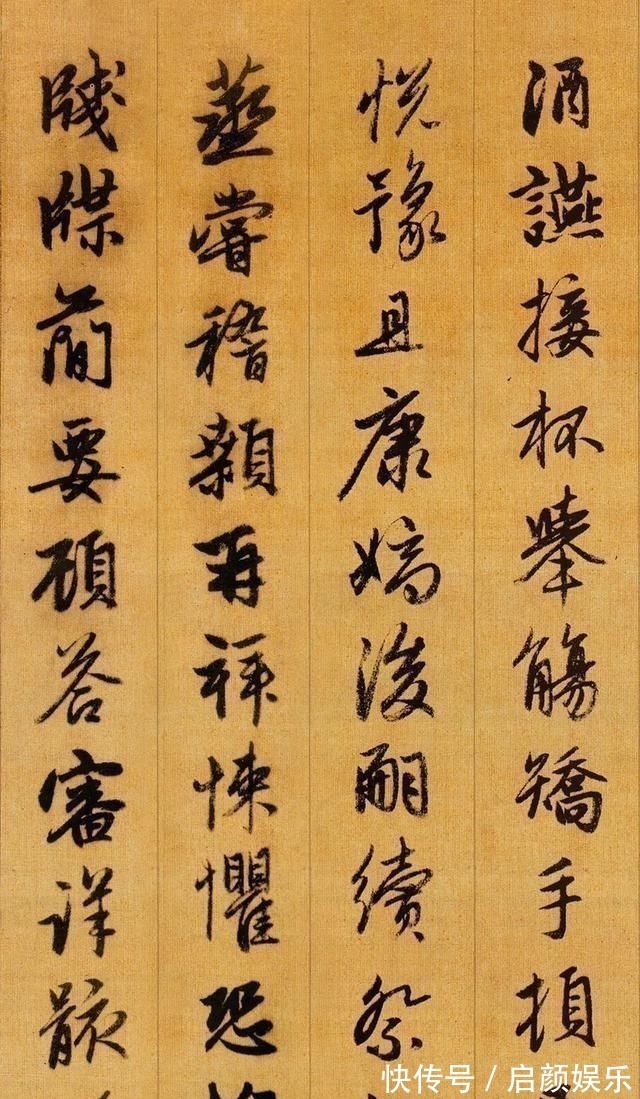 酒讌接杯舉觴矯手頓
悅豫且康嫡後嗣續祭
蒸嘗稽顙再拜悚懼恐
牋牒簡要顧答審詳骸
快传号／启颜娱乐